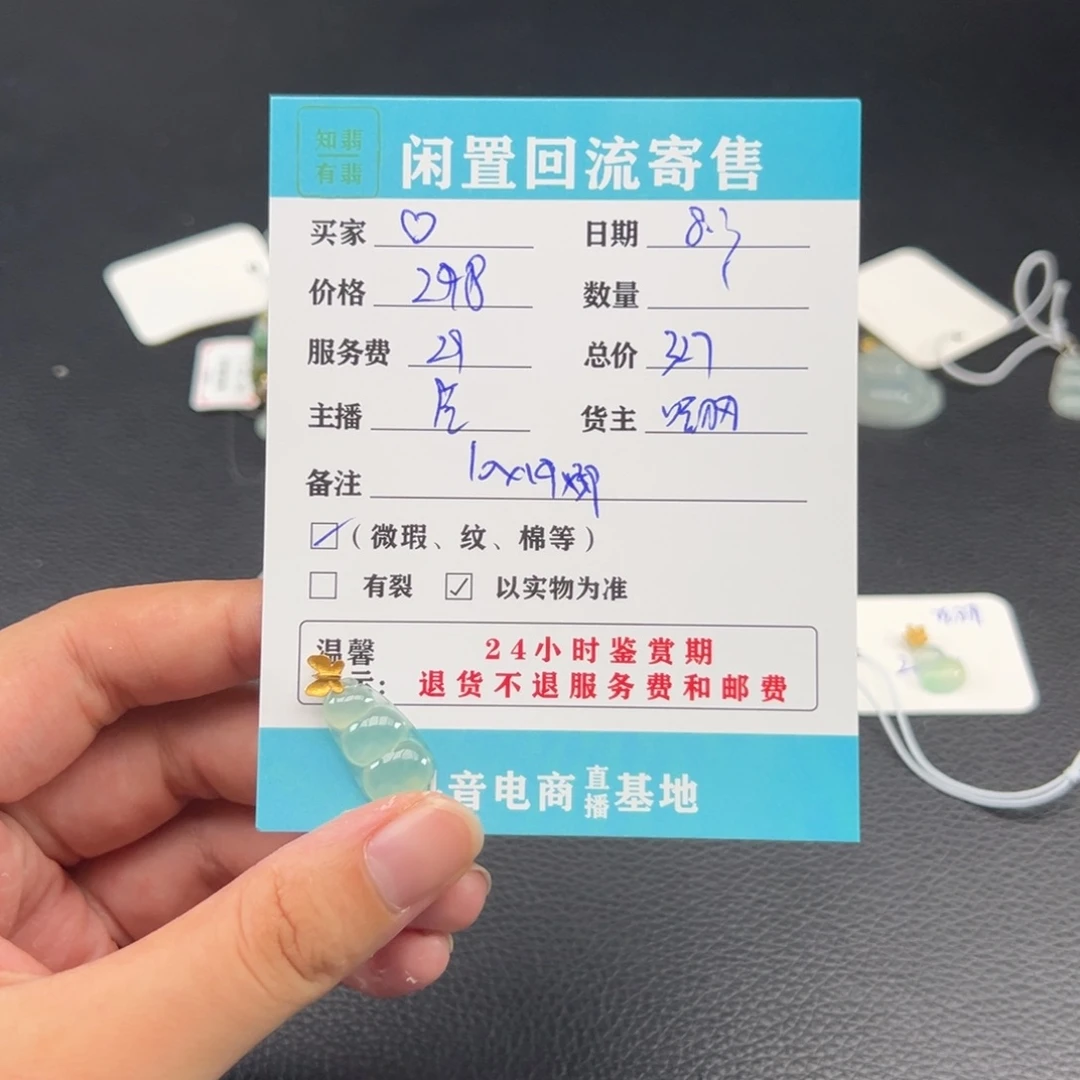 知翡
有翡
闲置回流寄售
买家 ♡ 日期 8.3
价格 298 数量 1
服务费 29 总价 327
主播 货主
备注
(微瑕、纹、棉等)
有裂 以实物为准
温馨 24小时鉴赏期
示: 退货不退服务费和邮费
音电商直播基地